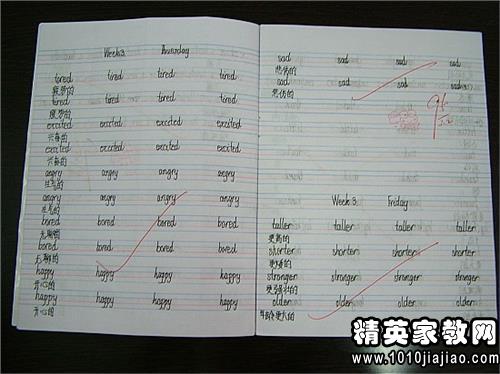 Week 3 Thursday
tired tired tired tired
疲劳的
tired tired tired tired
疲劳的
excited excited excited excited
兴奋的
excited excited excited excited
兴奋的
angry angry angry angry
生气的
angry angry angry angry
生气的
bored bored bored bored
无聊的
bored bored bored bored
无聊的
happy happy happy happy
开心的
happy happy happy happy
开心的
sad sad sad sad
悲伤的
sad sad sad sad
悲伤的
Week 3 Friday
taller taller taller taller
更高的
shorter shorter shorter shorter
更矮的
stronger stronger stronger stronger
更强壮的
older older older older
年龄更大的
精英家教网
www.1010jiajiao.com